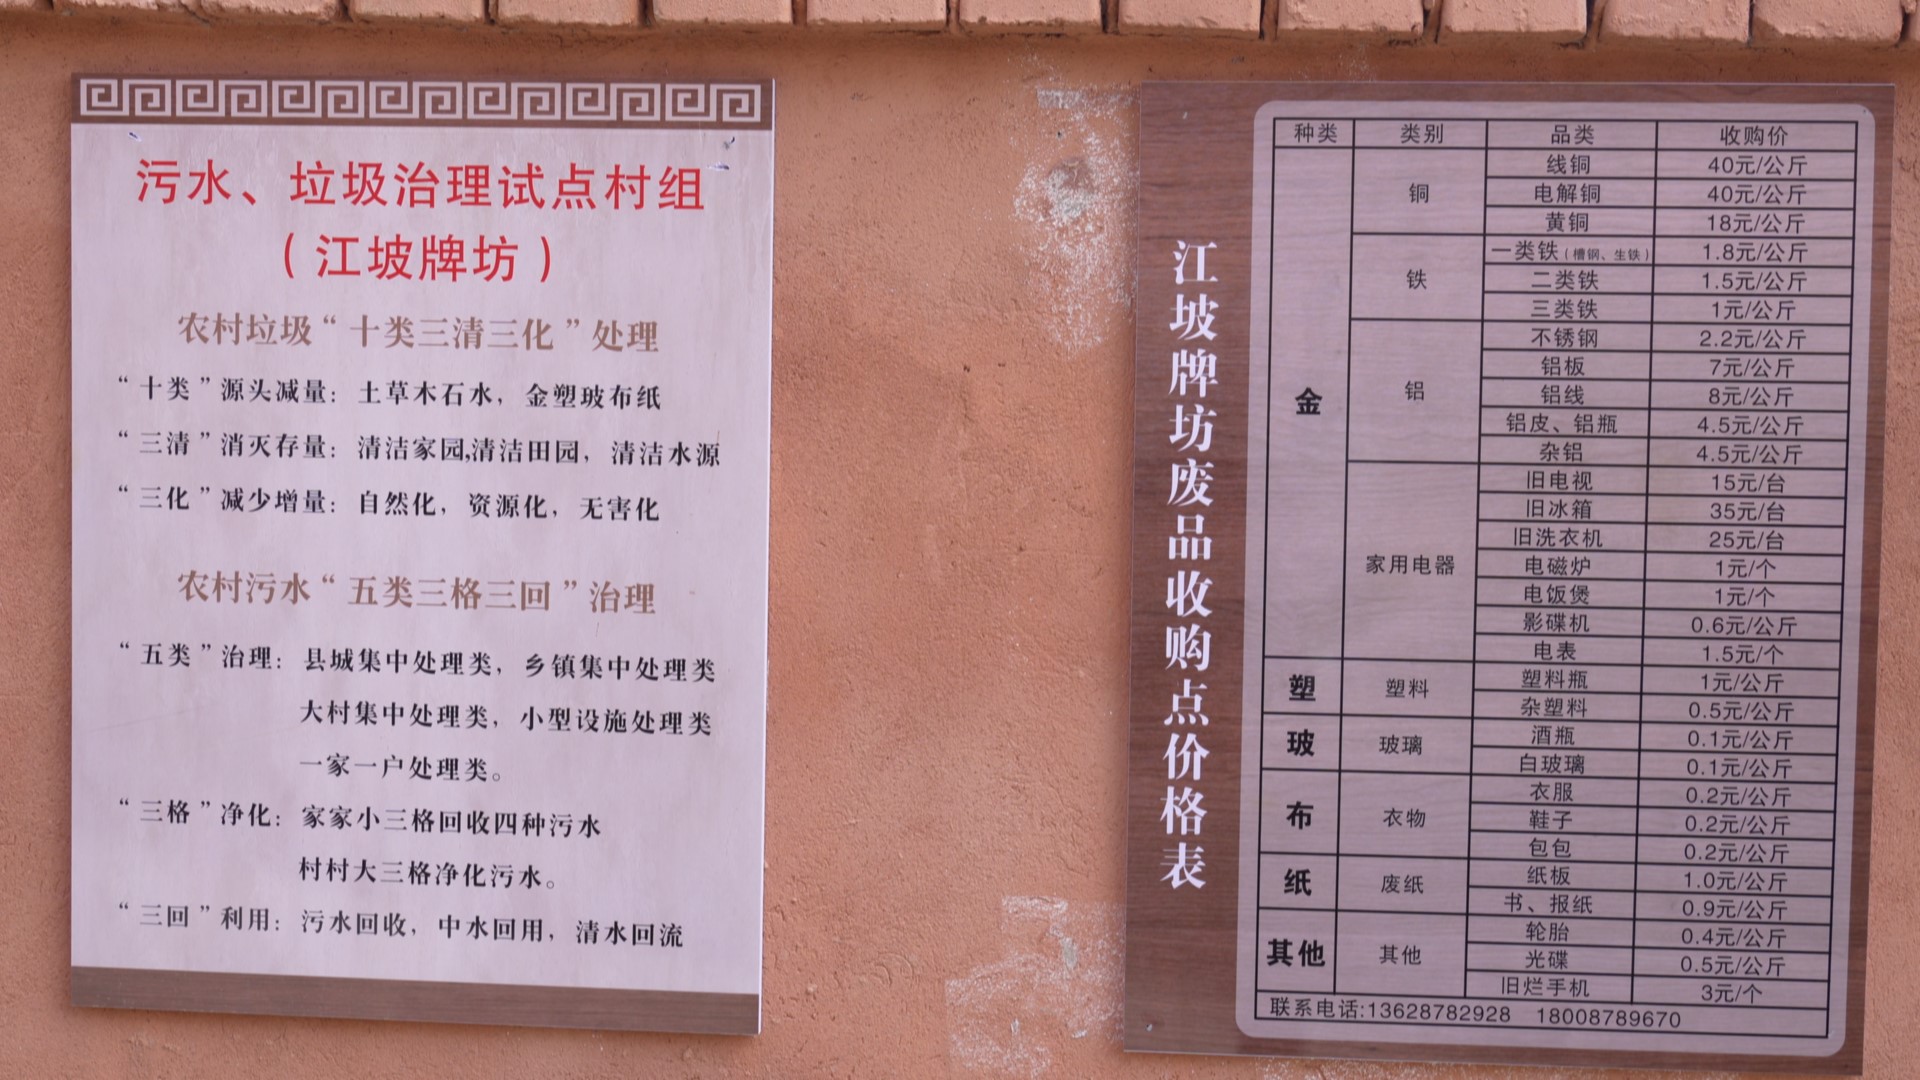 污水、垃圾治理试点村组
（江坡牌坊）
农村垃圾“十类三清三化”处理
“十类”源头减量：土草木石水，金塑玻布纸
“三清”消灭存量：清洁家园,清洁田园，清洁水源
“三化”减少增量：自然化，资源化，无害化
农村污水“五类三格三回”治理
“五类”治理：县城集中处理类，乡镇集中处理类
大村集中处理类，小型设施处理类
一家一户处理类。
“三格”净化：家家小三格回收四种污水
村村大三格净化污水。
“三回”利用：污水回收，中水回用，清水回流
江坡牌坊废品收购点价格表
种类 类别 品类 收购价
金 铜 线铜 40元/公斤
电解铜 40元/公斤
黄铜 18元/公斤
铁 一类铁（槽钢、生铁） 1.8元/公斤
二类铁 1.5元/公斤
三类铁 1元/公斤
铝 不锈钢 2.2元/公斤
铝板 7元/公斤
铝线 8元/公斤
铝皮、铝瓶 4.5元/公斤
杂铝 4.5元/公斤
家用电器 旧电视 15元/台
旧冰箱 35元/台
旧洗衣机 25元/台
电磁炉 1元/个
电饭煲 1元/个
影碟机 0.6元/公斤
电表 1.5元/个
塑 塑料 塑料瓶 1元/公斤
杂塑料 0.5元/公斤
玻 玻璃 酒瓶 0.1元/公斤
白玻璃 0.1元/公斤
布 衣物 衣服 0.2元/公斤
鞋子 0.2元/公斤
包包 0.2元/公斤
纸 废纸 纸板 1.0元/公斤
书、报纸 0.9元/公斤
其他 其他 轮胎 0.4元/公斤
光碟 0.5元/公斤
旧烂手机 3元/个
联系电话:13628782928 18008789670